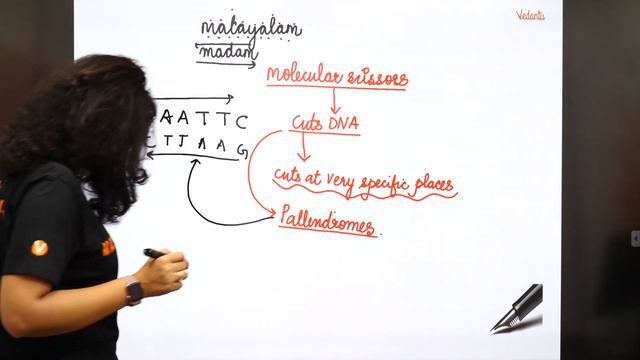 malayalam
madam
Vedantu
molecular scissors
AATTC
Cuts DNA
TTAAG
cuts at very specific places
Pallendromes.